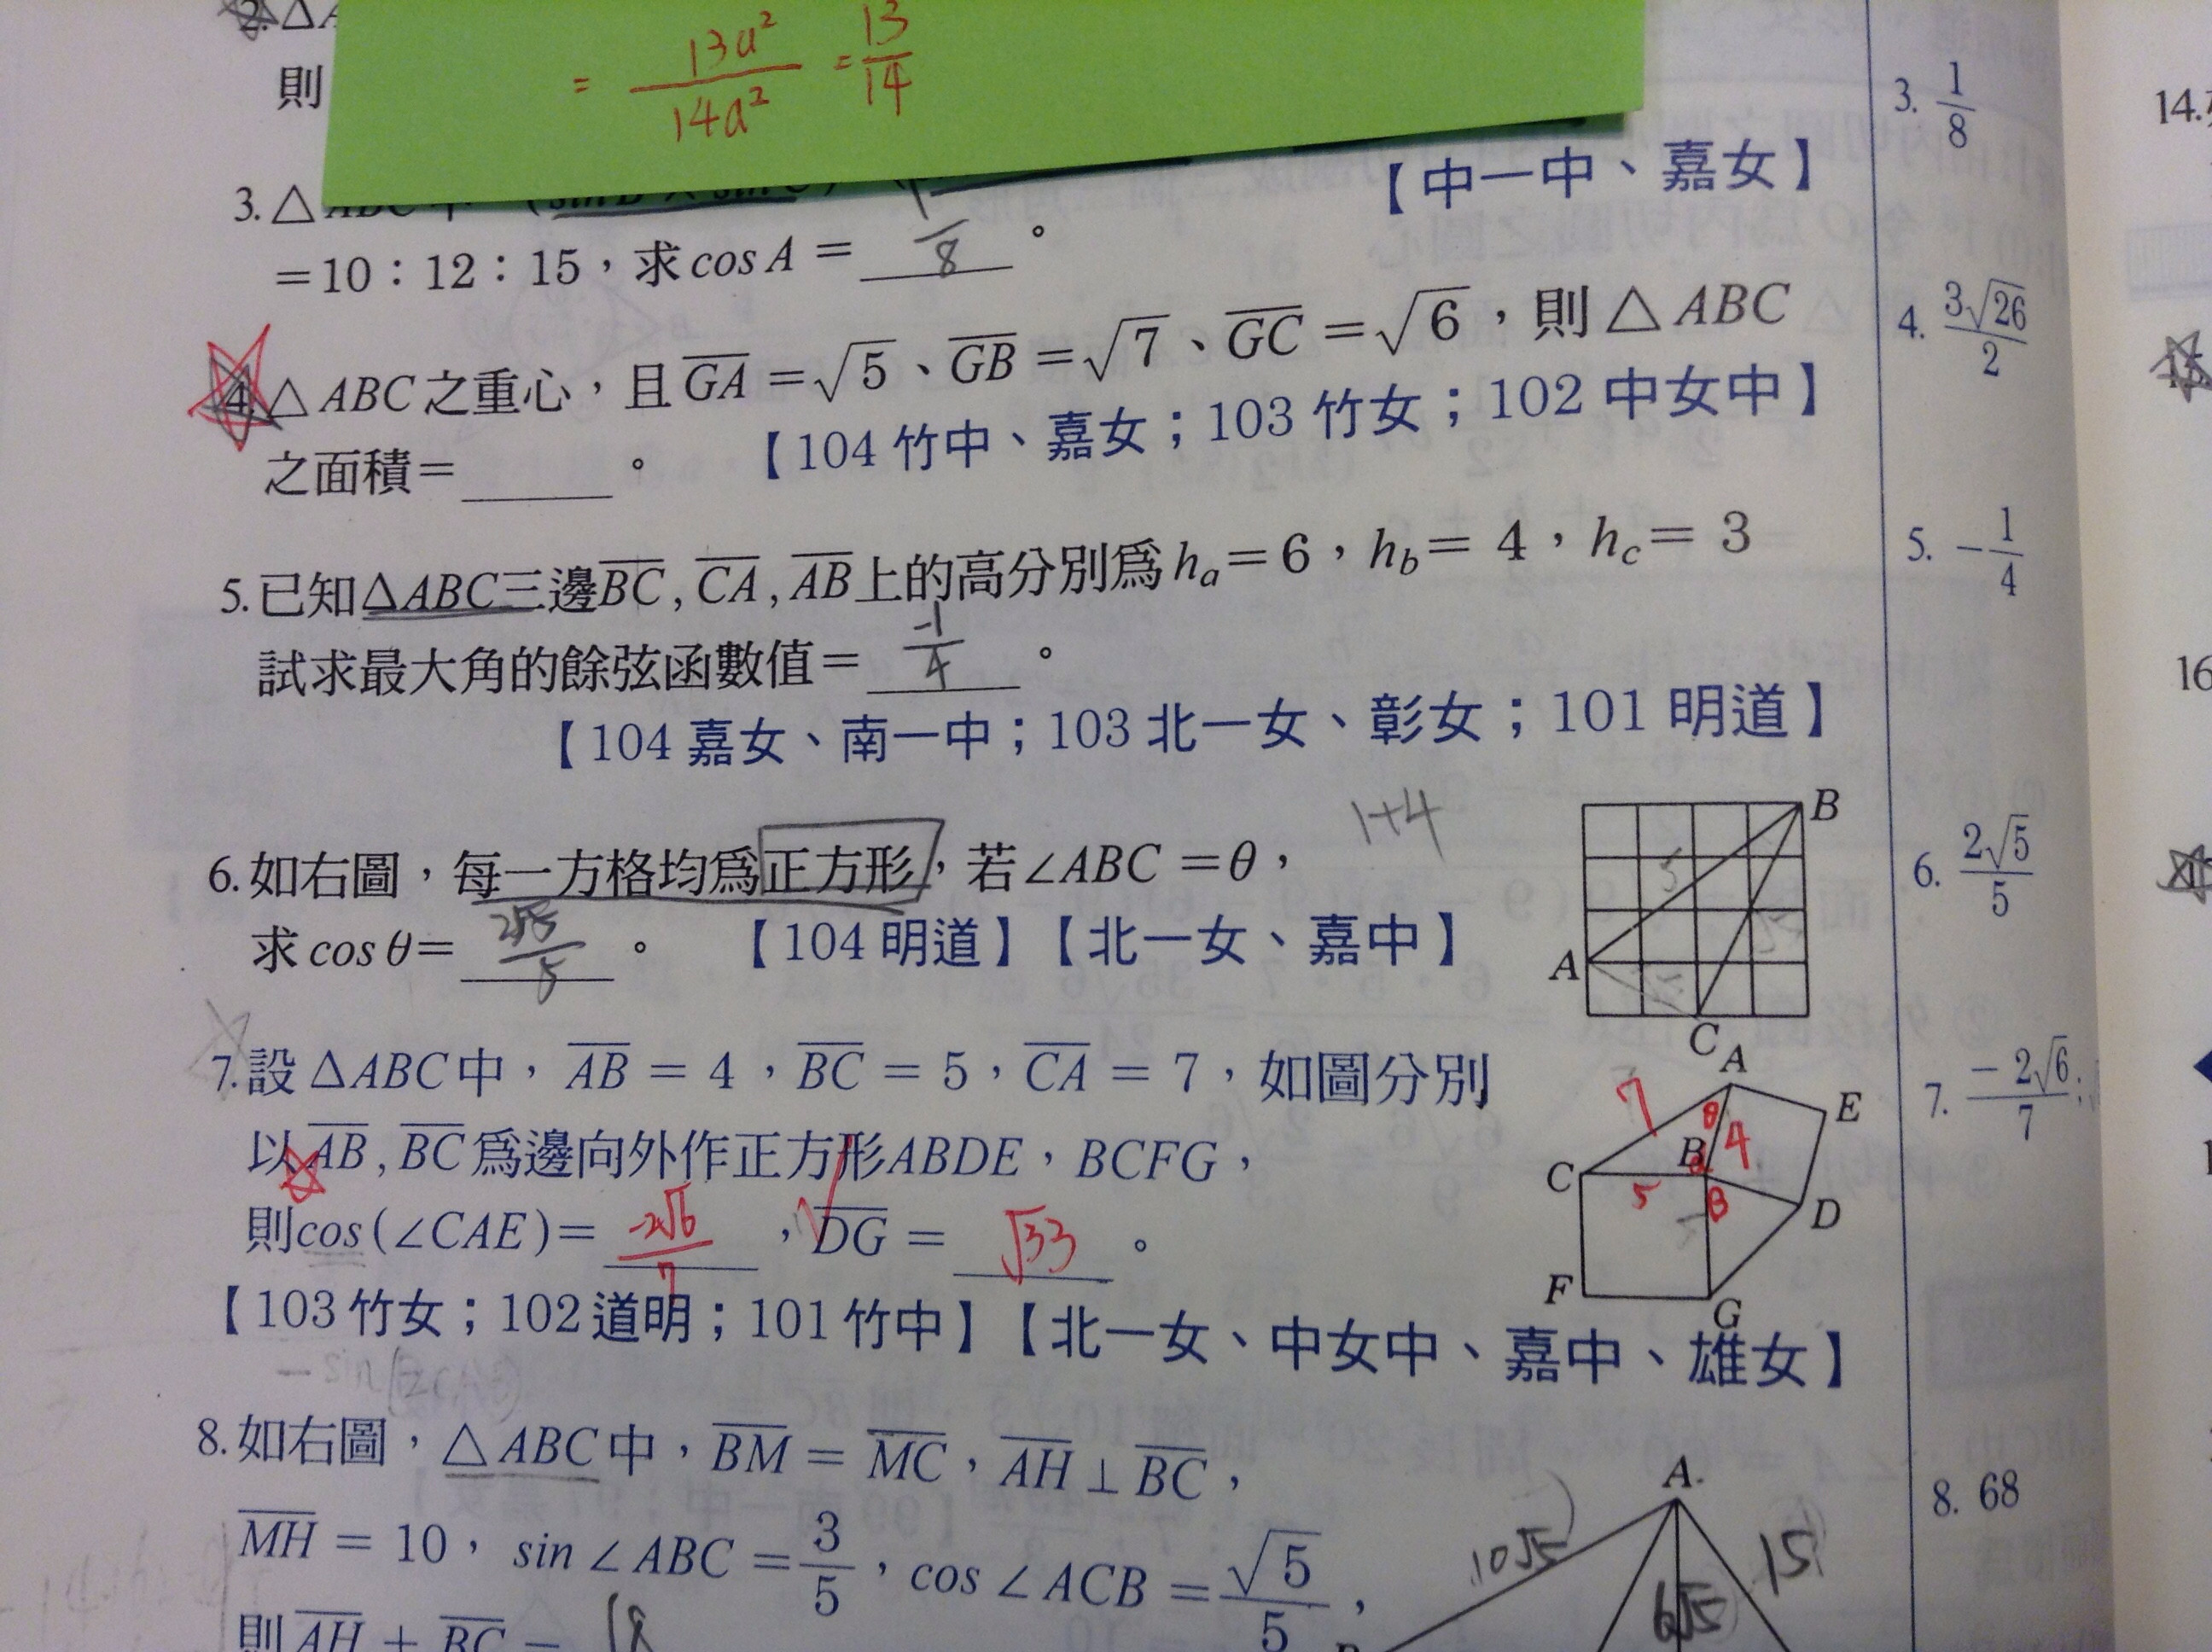 2.△A
則
= 13a²/14a² = 13/14
3.△ABC中
=10：12：15，求cos A = 1/8 。
【中一中、嘉女】
4.△ABC之重心，且GA=√5、GB=√7、GC=√6，則△ABC
之面積=_____。 【104竹中、嘉女；103竹女；102中女中】
5.已知△ABC三邊BC,CA,AB上的高分別為hₐ=6，h_b=4，h_c=3
試求最大角的餘弦函數值= -1/4 。
【104嘉女、南一中；103北一女、彰女；101明道】
6.如右圖，每一方格均為正方形，若∠ABC=θ，
1+4
求cosθ= 2√5/5 。 【104明道】【北一女、嘉中】
B
5
A
C
7.設△ABC中，AB=4，BC=5，CA=7，如圖分別
以AB,BC為邊向外作正方形ABDE，BCFG，
則cos(∠CAE)= -2√6/7 ，DG= √33 。
【103竹女；102道明；101竹中】【北一女、中女中、嘉中、雄女】
A
E
7
θ
4
B
C
5
D
F
G
8.如右圖，△ABC中，BM=MC，AH⊥BC，
MH=10，sin∠ABC=3/5，cos∠ACB=√5/5，
則AH+BC=
A
10√5
15
6√5
B
3. 1/8
4. 3√26/2
5. -1/4
6. 2√5/5
7. -2√6/7;
8. 68
14.
15.
16